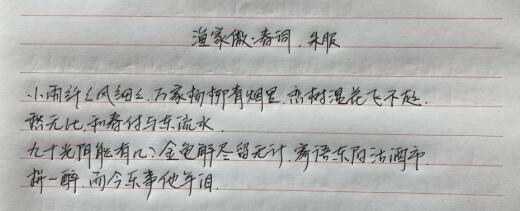 渔家傲·春词.朱服
小雨纤纤风细细.万家杨柳青烟里.恋树湿花飞不起.
愁无比.和春付与东流水.
九十光阴能有几?金龟解尽留无计.寄语东阳沽酒市
拼一醉.而今乐事他年泪.